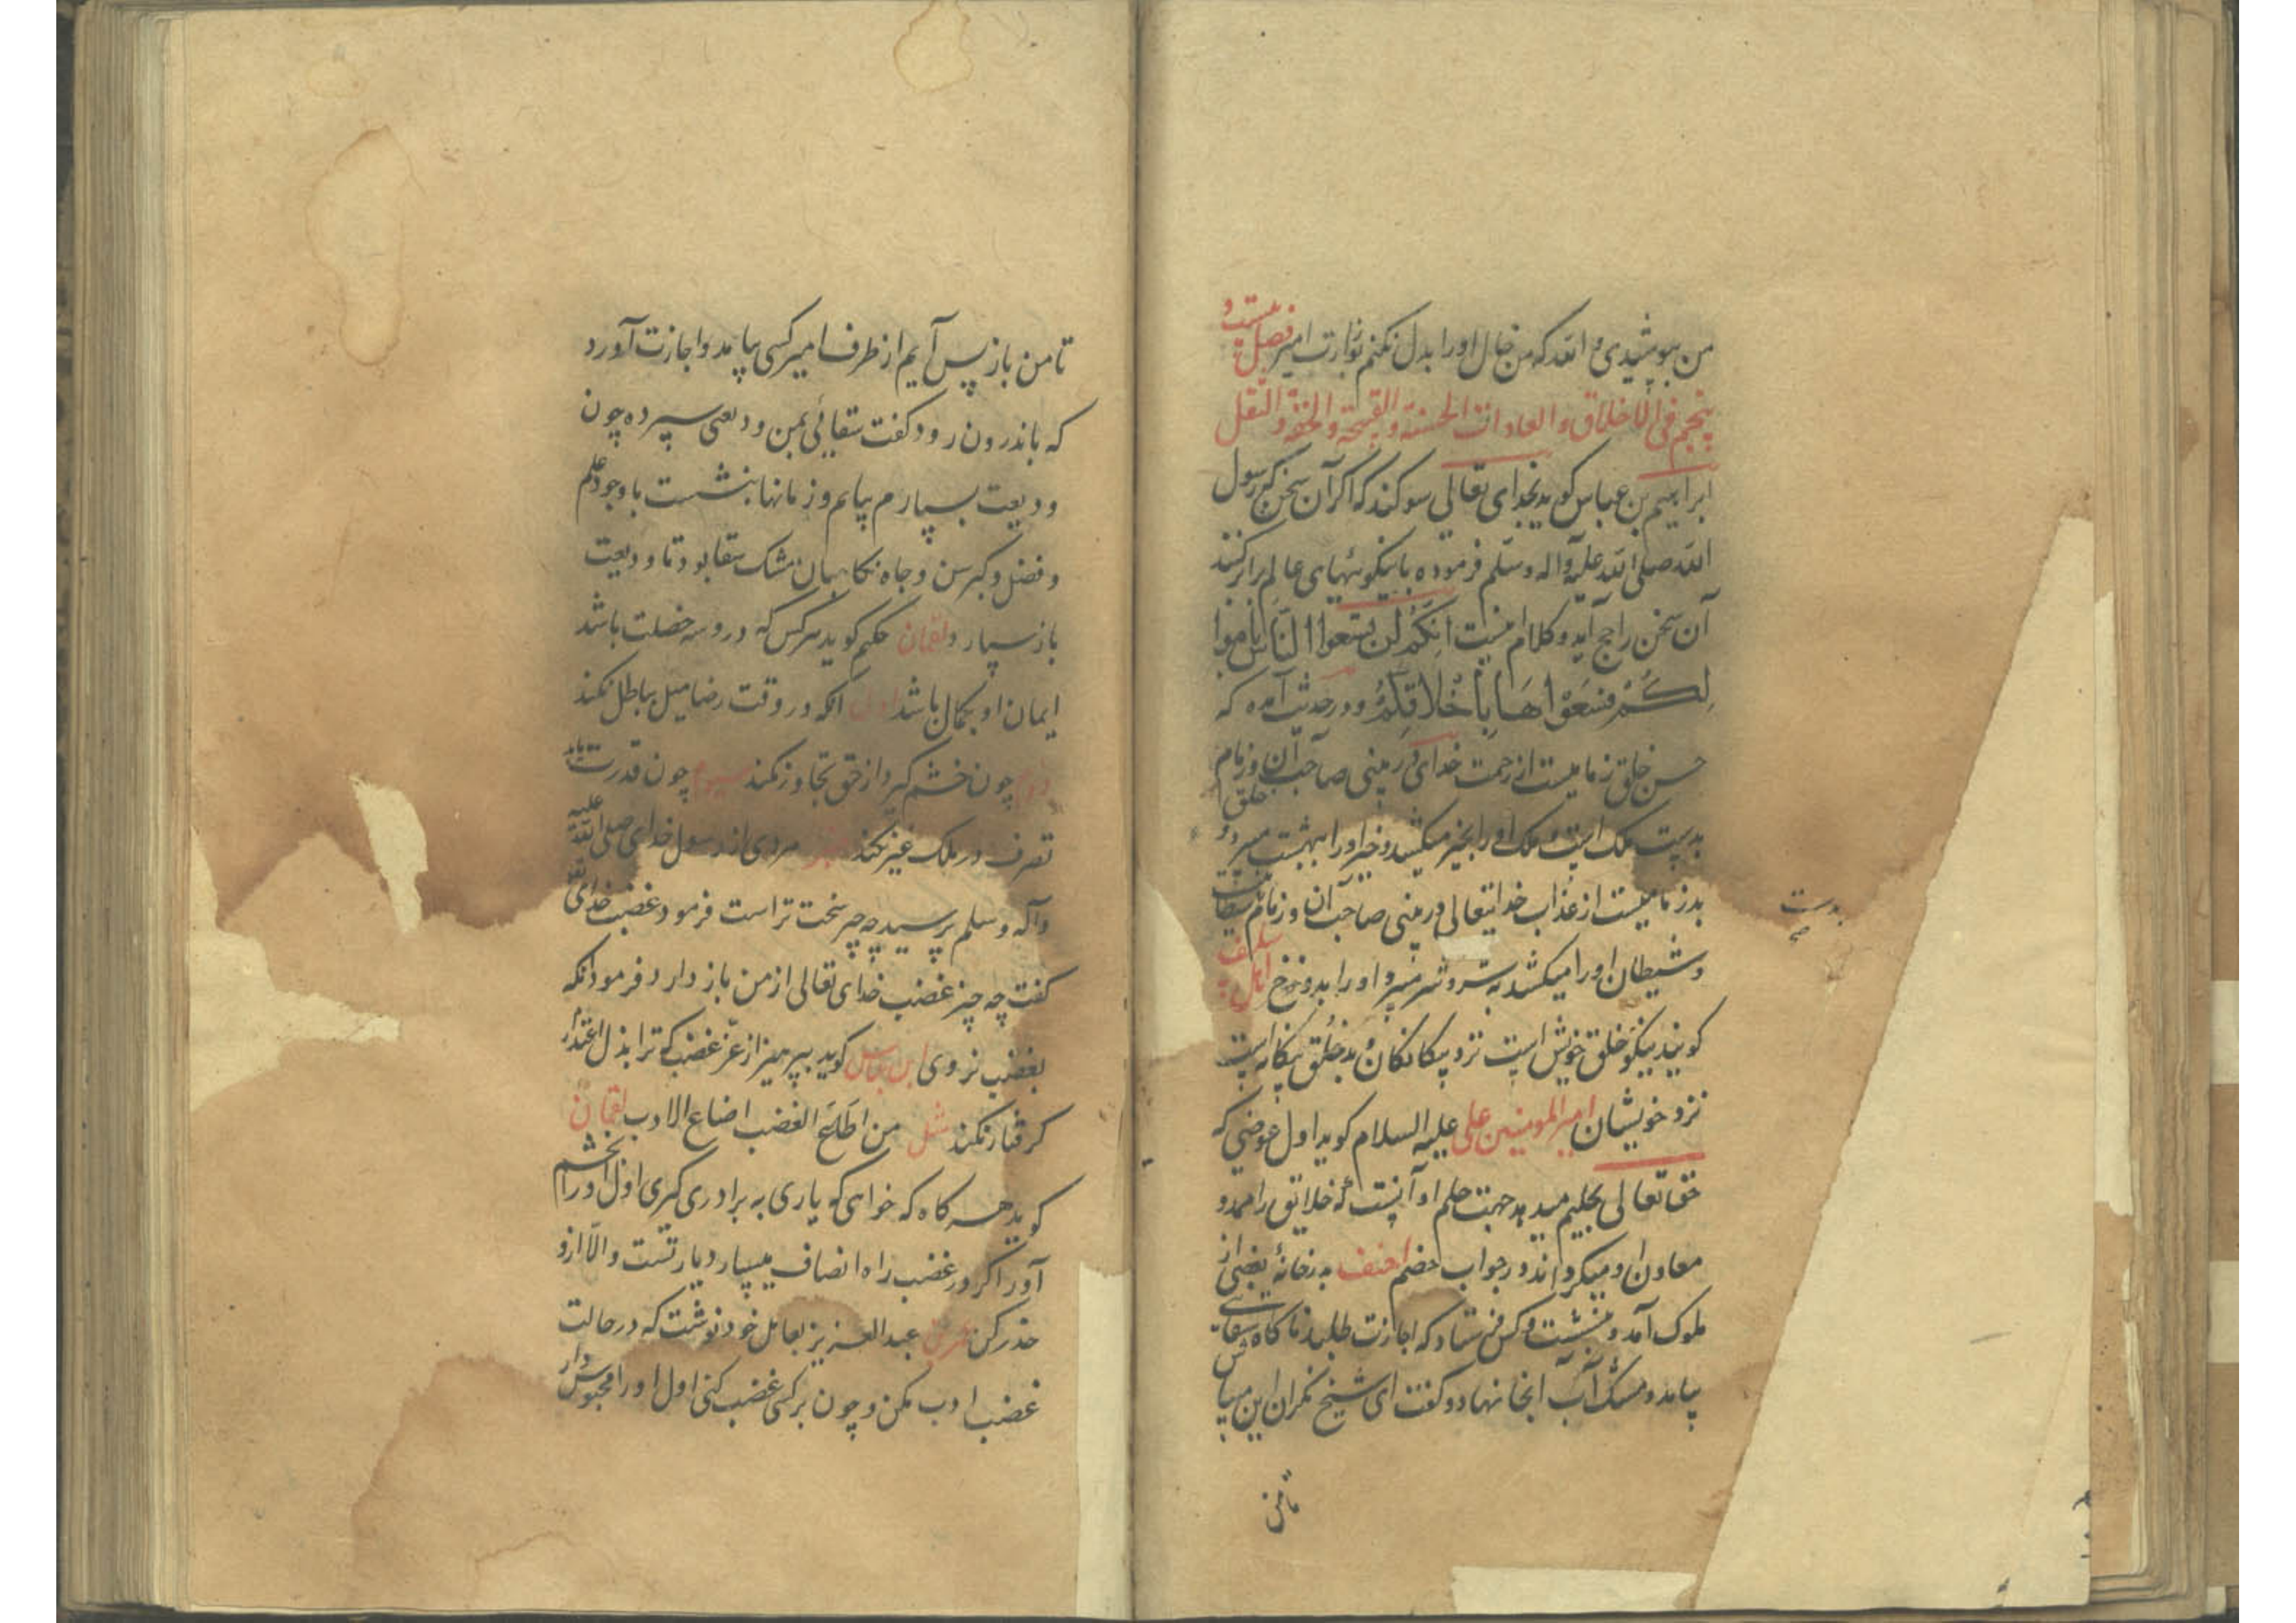 من بپوشیدی و الله که من خیال او را بدل نکنم بوزارت امیر فصل بیست و
پنجم فی الاخلاق و العادات الحسنة و القبیحة و الخفة و الثقل
ابراهیم بن عباس کوید بخدای تعالی سوکند که اکر آن سخن که رسول
الله صلی الله علیه و آله و سلم فرموده با نیکوئیهای عالم برابر کنند
آن سخن راجح آید و کلام اینست انکم لن تسعوا الناس باموا
لکم فسعوا ها باخلاقکم و در حدیث آمده که
حسن خلق زمامیست از رحمت خدای در بینی صاحب آن و زمام
بدست ملک است و ملک او را بخیر میکشد و خیر او را ببهشت میبرد و خلق
بد زمامیست از عذاب خدایتعالی در بینی صاحب آن و زمام بدست شیطان
و شیطان او را میکشد به شر و شر میبرد او را بدوزخ سلف
کویند نیکو خلق خویش است نزد بیکانکان و بد خلق بیکانه است
نزد خویشان امیر المومنین علی علیه السلام کوید اول عوضی که
حق تعالی بحلیم میدهد جهت حلم او آنست که خلایق را ممد و
معاون او میکرداند در جواب خصم احنف بدر خانهٔ بعضی از
ملوک آمد و بنشست و کس فرستاد که اجازت طلبد ناکاه سقای
بیامد و مشک آب آنجا نهاد و کفت ای شیخ نکران این میباش
تا من
بدست
صح
تا من باز پس آیم از طرف امیر کسی بیامد و اجازت آورد
که باندرون رود کفت سقائی بمن ودیعتی سپرده چون
ودیعت بسپارم بیایم و زمانها بنشست با وجود علم
و فضل و کبر سن و جاه نکاهبان مشک سقا بود تا ودیعت
باز سپارد لقمان حکیم کوید هر کس که در و سه خصلت باشد
ایمان او بکمال باشد اول آنکه در وقت رضا میل بباطل نکند
دوم چون خشم کیرد از حق تجاوز نکند سیوم چون قدرت یابد
تصرف در ملک غیر نکند مردی از رسول خدای صلی الله علیه
و آله و سلم پرسید چه چیز سخت تر است فرمود غضب خدای تعالی
کفت چه چیز غضب خدای تعالی از من باز دارد فرمود آنکه
بغضب نروی ابن عباس کوید بپرهیز از عز غضب که ترا بذل اعتذار
کرفتار نکند مثل من اطاع الغضب اضاع الادب لقمان
کوید هر کاه که خواهی که یاری به برادری کیری اول او را بخشم
آور اکر در غضب راه انصاف میسپارد یار تست و الا ازو
حذر کن عمر بن عبد العزیز بعامل خود نوشت که در حالت
غضب ادب مکن و چون بر کسی غضب کنی اول او را محبوس دار